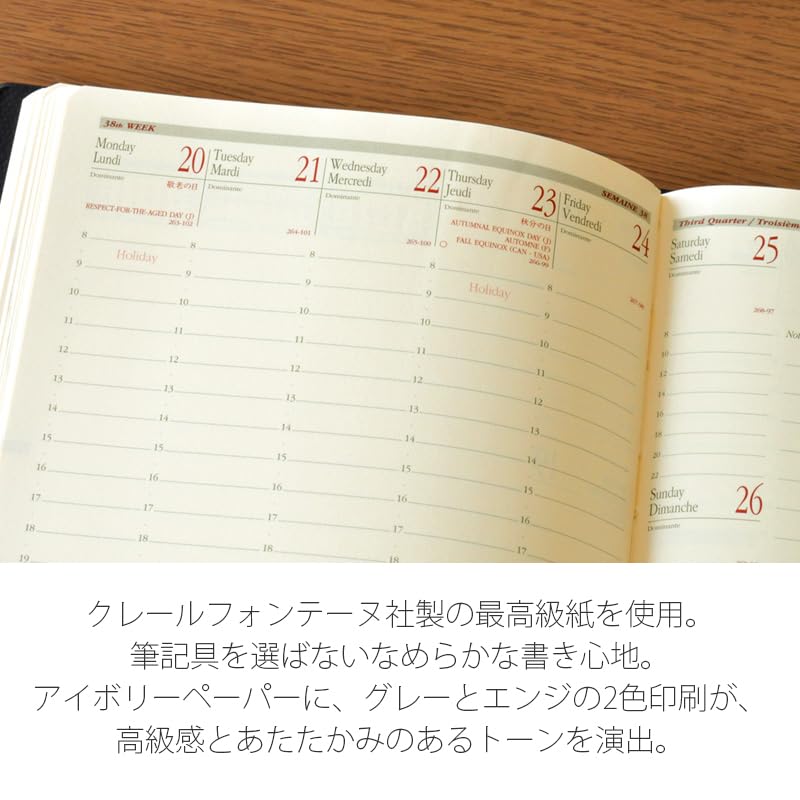 38th WEEK
SEMAINE 38
Monday
Lundi
20
Dominante
敬老の日
RESPECT-FOR-THE-AGED DAY (J)
263-102
Tuesday
Mardi
21
Dominante
264-101
Wednesday
Mercredi
22
Dominante
265-100
Thursday
Jeudi
23
Dominante
秋分の日
AUTUMNAL EQUINOX DAY (J)
AUTOMNE (F)
FALL EQUINOX (CAN - USA)
266-99
Friday
Vendredi
24
Dominante
Third Quarter / Troisièm
Saturday
Samedi
25
Dominante
268-97
8 8 8 8 8
Holiday
Holiday
9 9 9 9 9
10 10 10 10 10
11 11 11 11 11
12 12 12 12 12
13 13 13 13 13
14 14 14 14 14
15 15 15 15
16 16 16 16
17 17 17 17
18 18 18
19
8
9
10
11
12
14
16
18
20
22
Sunday
Dimanche
26
Dominante
クレールフォンテーヌ社製の最高級紙を使用。
筆記具を選ばないなめらかな書き心地。
アイボリーペーパーに、グレーとエンジの2色印刷が、
高級感とあたたかみのあるトーンを演出。